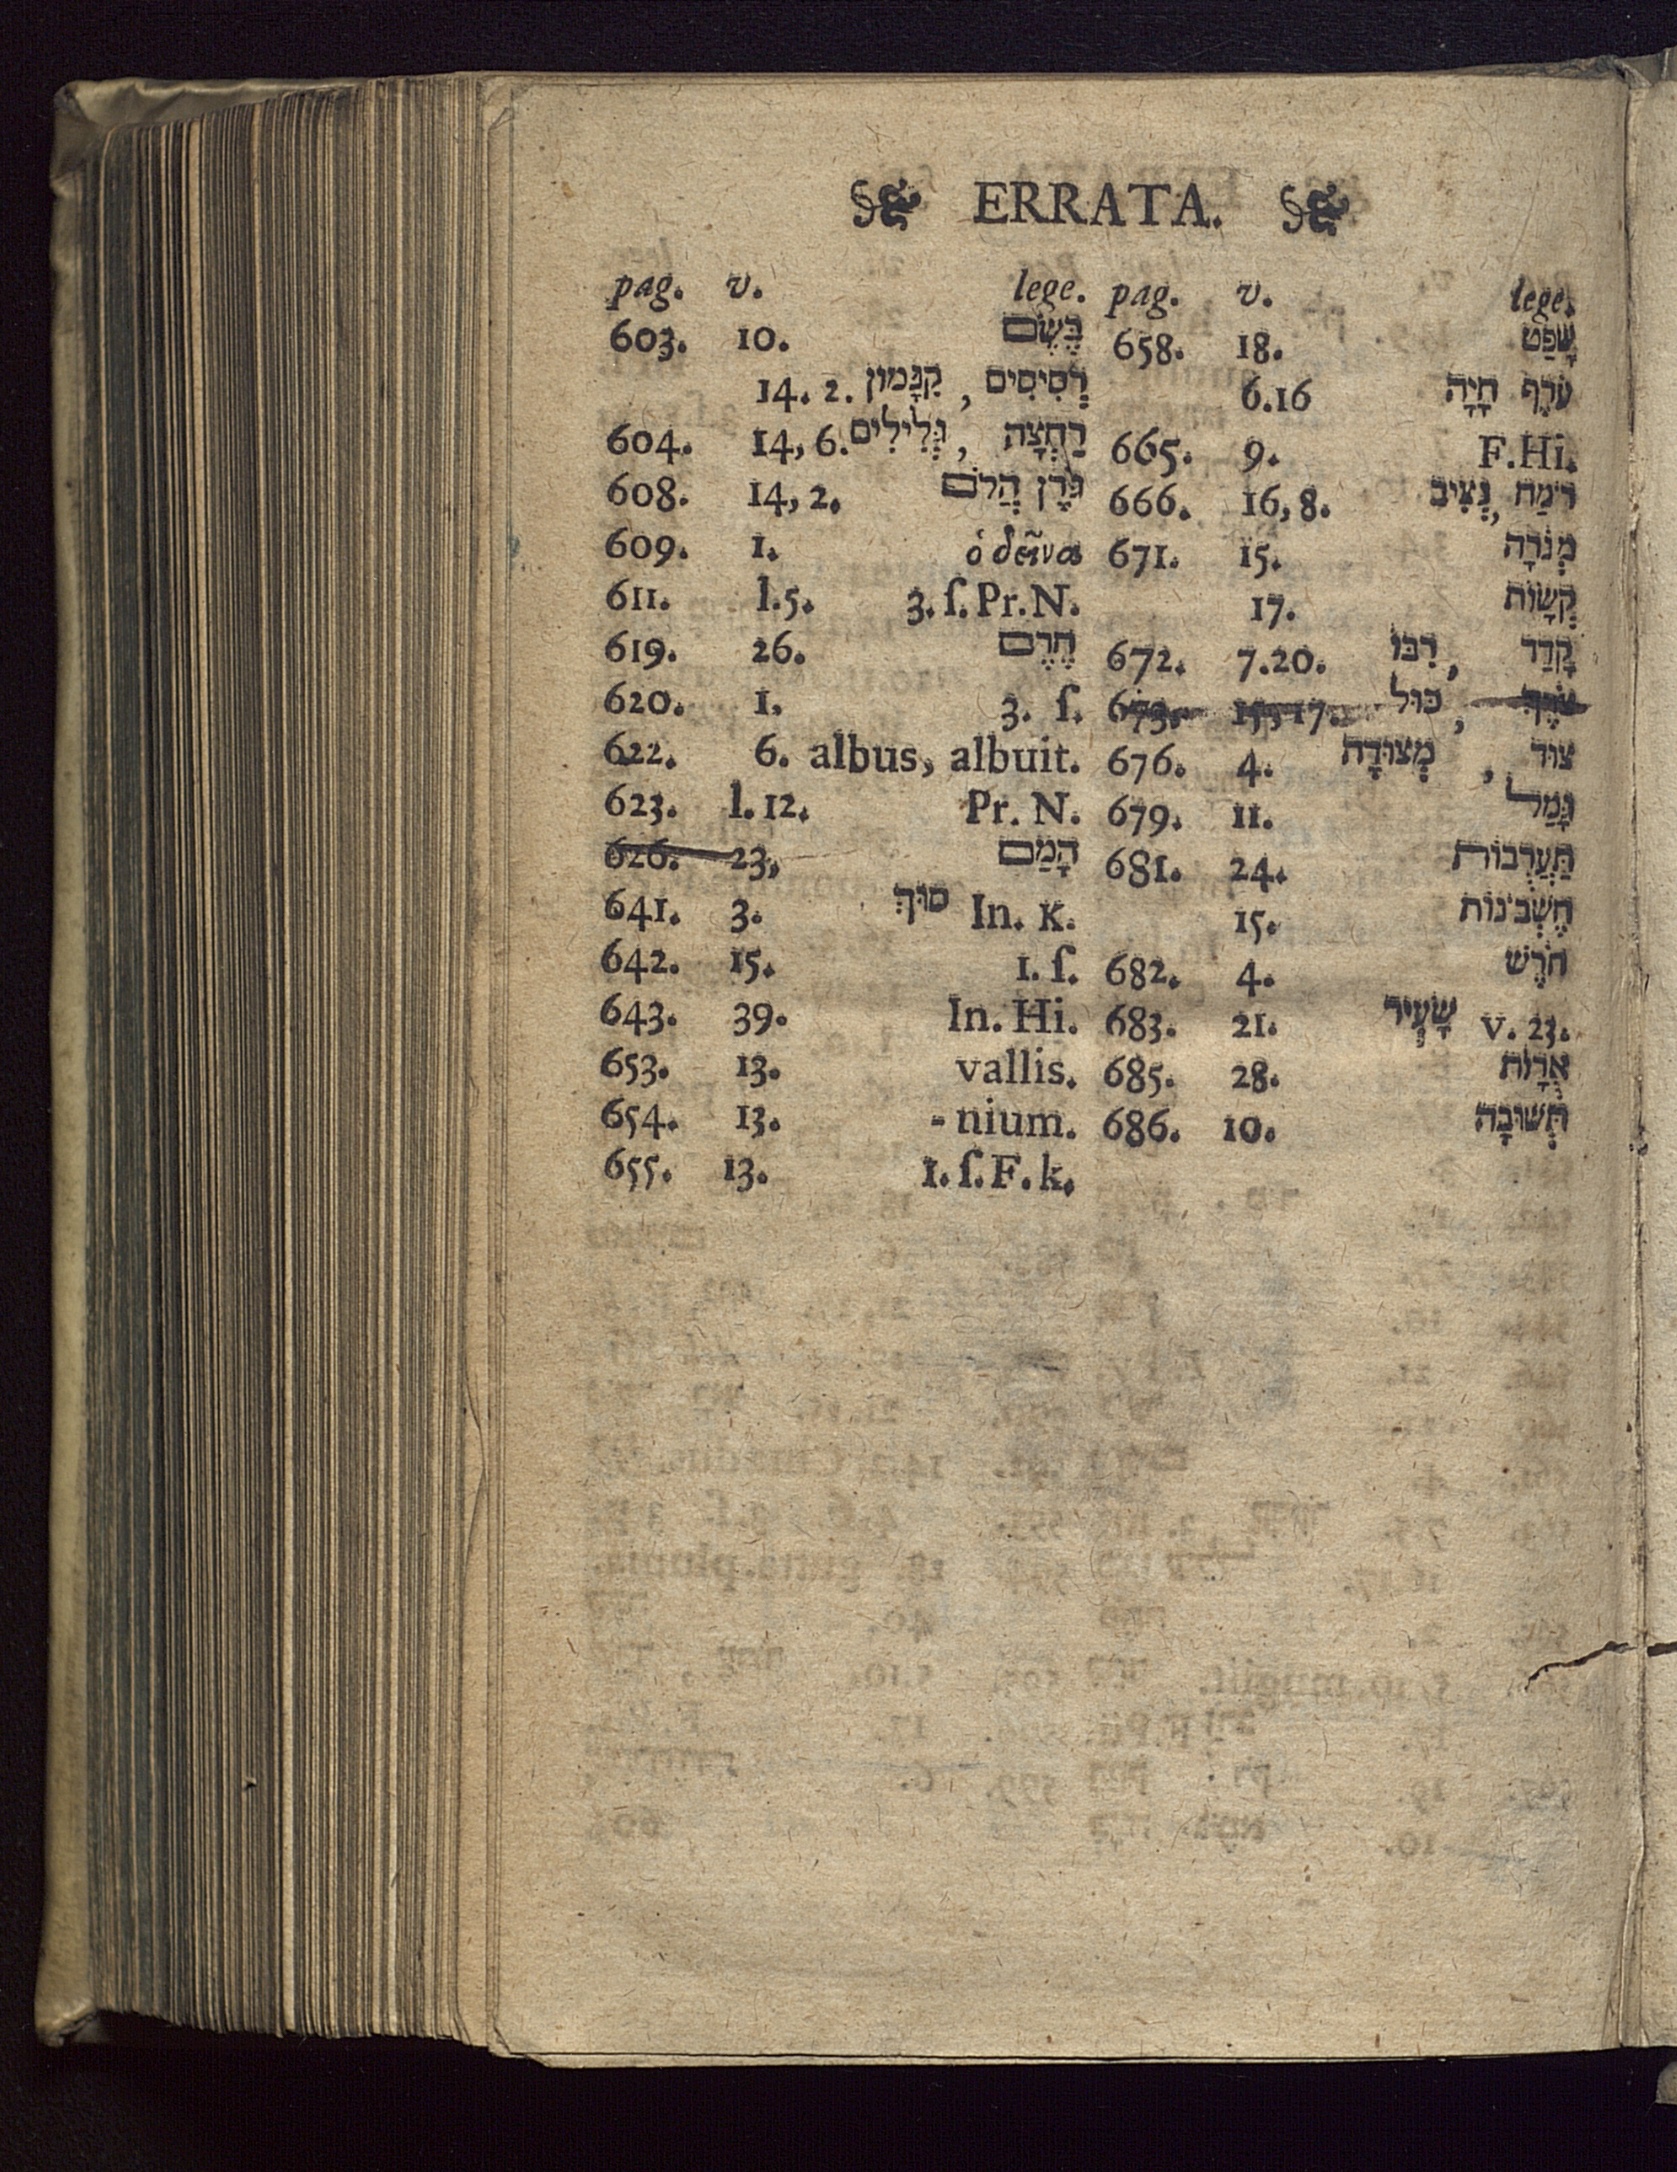 ERRATA.
pag. v. lege.
603. 10. בֶּשֶׂם
14. 2. רְסִיסִים , קִנָּמוֹן
604. 14, 6. רַחְצָה , גְּלִילִים
608. 14, 2. גֹּרֶן הֲלֹם
609. 1. ὁ δεῖνα
611. l.5. 3. ſ. Pr. N.
619. 26. חֶרֶם
620. 1. 3. ſ.
622. 6. albus, albuit.
623. l. 12. Pr. N.
626. 23, הָמַם
641. 3. סוּךְ In. K.
642. 15. 1. ſ.
643. 39. In. Hi.
653. 13. vallis.
654. 13. -nium.
655. 13. 1. ſ. F. k.
pag. v. lege.
658. 18. שָׁפַט
6.16 עֹרֶף חָיָה
665. 9. F. Hi.
666. 16, 8. רֹמַח, נְצִיב
671. 15. מְנֹרָה
17. קְשָׂוֹת
672. 7.20. קָדַד , רִבּוֹ
673. 15, 17. , כּוּל
676. 4. צוּד , מְצוּדָה
679. 11. גָּמַל
681. 24. תַּעֲרֻבוֹת
15. חֶשְׁבֹּנוֹת
682. 4. חֹרֶשׁ
683. 21. שָׂעִיר v. 23.
685. 28. אֻרָוֹת
686. 10. תְּשׁוּבָה